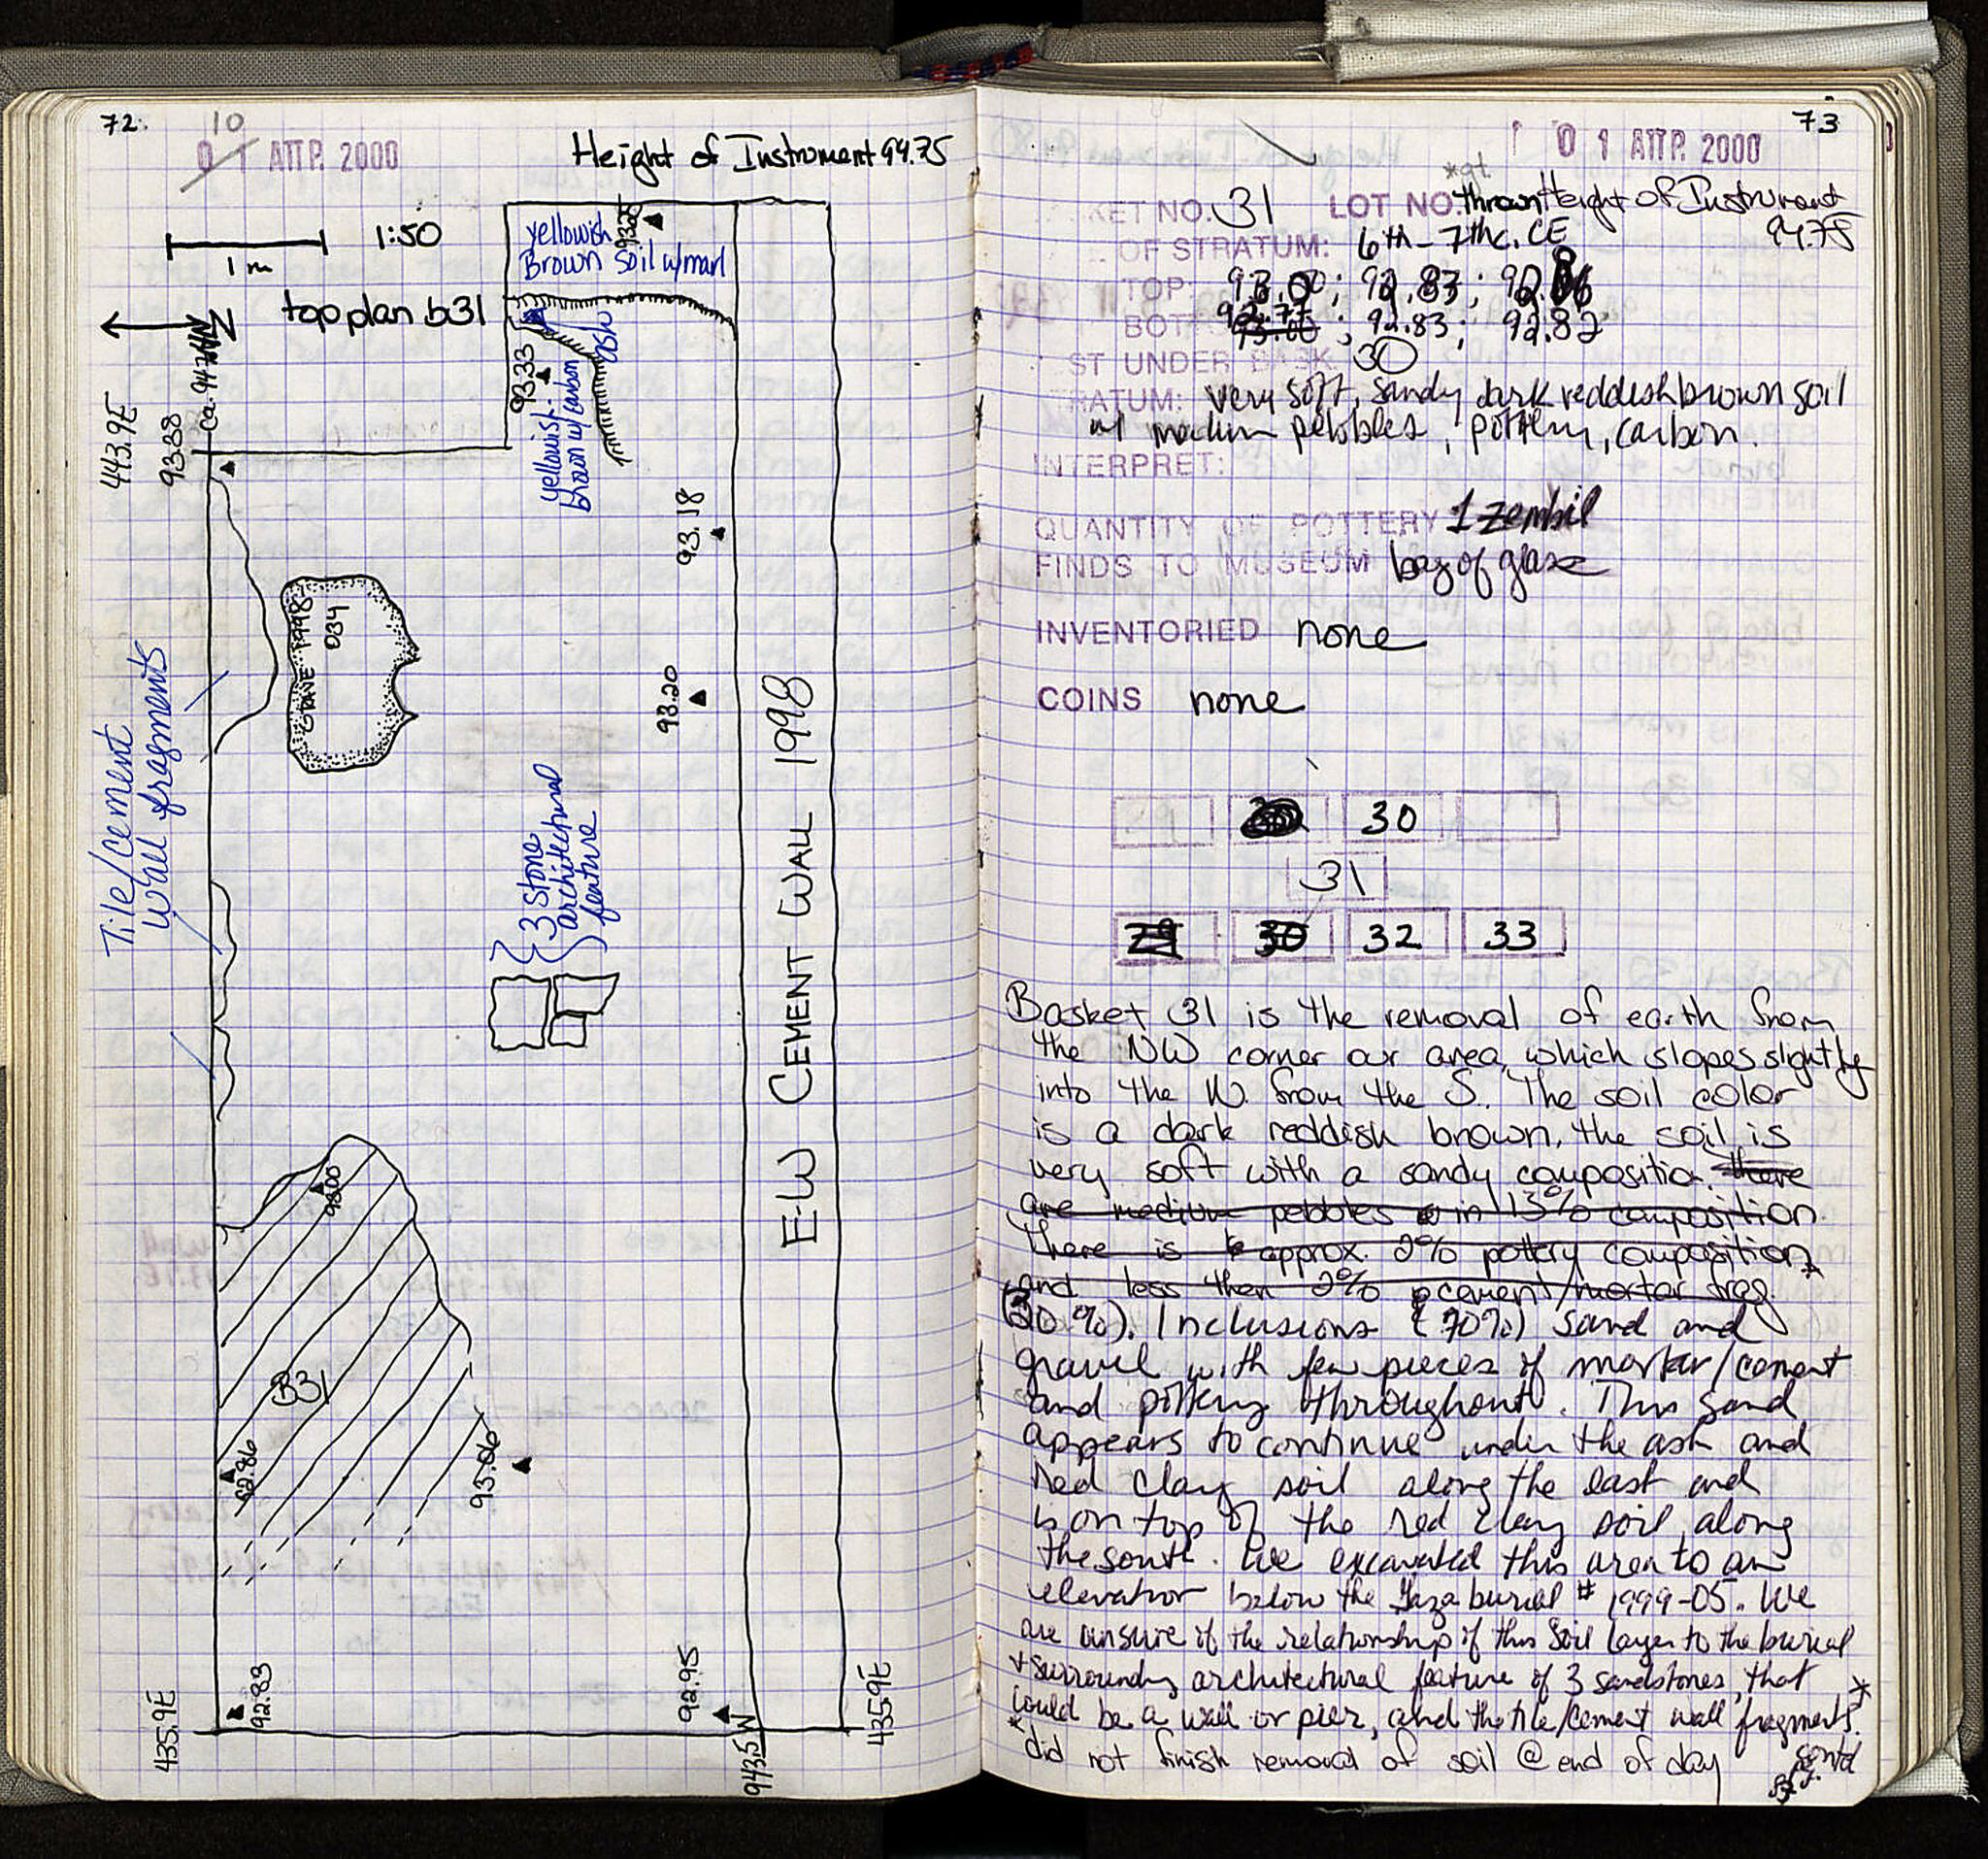 72.
10
0 1 ΑΠΡ. 2000
Height of Instrument 94.75
1:50
1 m
N
top plan b31
yellowish
Brown soil w/marl
93.25
ash
93.33
yellowish-
brown w/carbon
443.9E
93.38
ca. 947
93.18
STONE F998-
034
93.20
Tile/cement
wall fragments
3 stone
architectural
feature
E-W CEMENT WALL 1998
93.00
B31
92.86
93.06
435.9E
92.83
92.95
943.5
435.9E
73
0 1 ΑΠΡ. 2000
KET NO. 31 LOT NO. *gt thrown Height of Instrument
94.75
OF STRATUM: 6th-7thc. CE
TOP: 93.00; 92.83; 92.86
BOT 92.77 93.00; 92.83; 92.82
ST UNDER BASK 30
RATUM: very soft, sandy dark reddish brown soil
w/ medium pebbles, pottery, carbon.
INTERPRET:
QUANTITY OF POTTERY 1 zembil
FINDS TO MUSEUM bag of glass
INVENTORIED none
COINS none
30
31
29 30 32 33
Basket 31 is the removal of earth from
the NW corner our area, which slopes slightly
into the W. from the S. The soil color
is a dark reddish brown, the soil is
very soft with a sandy composition. there
are medium pebbles in 13% composition.
there is approx. 2% pottery composition
and less then 2% cement/mortar frag.
(30%). Inclusions (70%) sand and
gravel with few pieces of mortar/cement
and pottery throughout. This sand
appears to continue under the ash and
red clay soil along the east and
is on top of the red clay soil along
the south. We excavated this area to an
elevation below the Gaza burial # 1999-05. We
are unsure if the relationship if this soil layer to the burial
+ surrounding architectural feature of 3 sandstones, that *
could be a wall or pier, and the tile/cement wall fragments.
*did not finish removal of soil @ end of day
cont'd